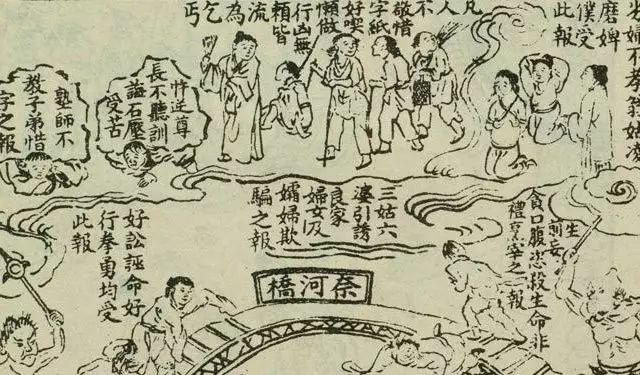 婦不孝翁姑凌
磨婢僕受
此報
凡
人
不
敬惜
字紙
好喫
懶做
行凶無
賴皆
流
為
乞
丐
忤逆尊
長不聽訓
誨石壓
受苦
塾師不
教子弟惜
字之報
生前妄
貪口腹恣殺生命非
禮烹宰之報
三姑六
婆引誘
良家
婦女及
孀婦欺
騙之報
好訟誣命好
行拳勇均受
此報
奈河橋